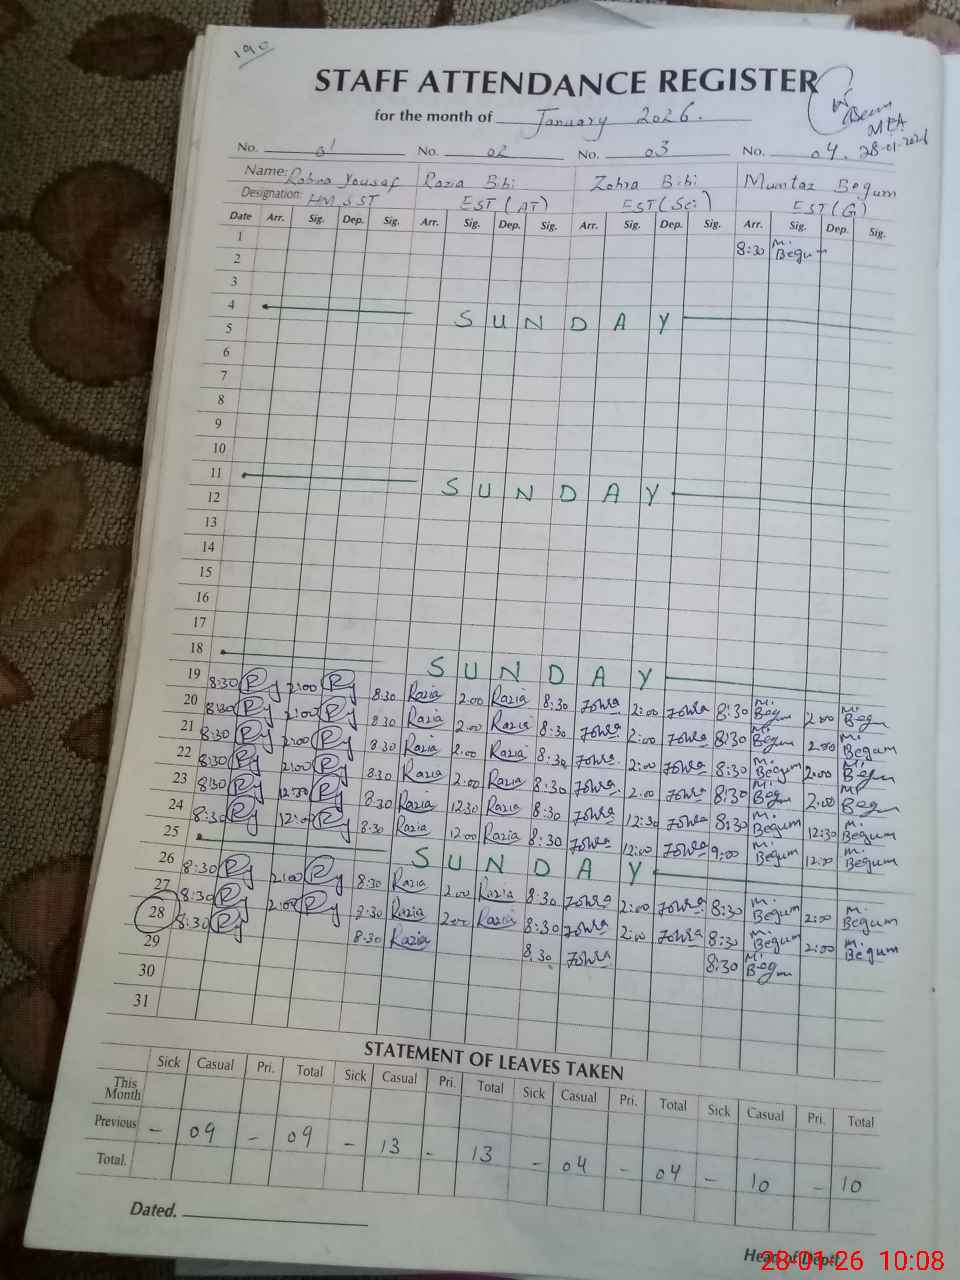 190
STAFF ATTENDANCE REGISTER
for the month of January 2026.
Begum
MEA
28-01-2026
No. 01 No. 02 No. 03 No. 04
Name: Robina Yousaf Razia Bibi Zohra Bibi Mumtaz Begum
Designation: HM SST EST (AT) EST (Sci) EST (G)
Date Arr. Sig. Dep. Sig. Arr. Sig. Dep. Sig. Arr. Sig. Dep. Sig. Arr. Sig. Dep. Sig.
1 8:30 M. Begum
2
3
4 SUNDAY
5
6
7
8
9
10
11 SUNDAY
12
13
14
15
16
17
18 SUNDAY
19 8:30 Ry 2:00 Ry 8:30 Razia 2:00 Razia 8:30 Zohra 2:00 Zohra 8:30 M. Begum 2:00 M. Begum
20 8:30 Ry 2:00 Ry 8:30 Razia 2:00 Razia 8:30 Zohra 2:00 Zohra 8:30 M. Begum 2:00 M. Begum
21 8:30 Ry 2:00 Ry 8:30 Razia 2:00 Razia 8:30 Zohra 2:00 Zohra 8:30 M. Begum 2:00 M. Begum
22 8:30 Ry 2:00 Ry 8:30 Razia 2:00 Razia 8:30 Zohra 2:00 Zohra 8:30 M. Begum 2:00 M. Begum
23 8:30 Ry 12:30 Ry 8:30 Razia 12:30 Razia 8:30 Zohra 12:30 Zohra 8:30 M. Begum 12:30 M. Begum
24 8:30 Ry 12:00 Ry 8:30 Razia 12:00 Razia 8:30 Zohra 12:00 Zohra 9:00 M. Begum 12:00 M. Begum
25 SUNDAY
26 8:30 Ry 2:00 Ry 8:30 Razia 2:00 Razia 8:30 Zohra 2:00 Zohra 8:30 M. Begum 2:00 M. Begum
27 8:30 Ry 2:00 Ry 8:30 Razia 2:00 Razia 8:30 Zohra 2:00 Zohra 8:30 M. Begum 2:00 M. Begum
28 8:30 Ry 8:30 Razia 8:30 Zohra 8:30 M. Begum
29
30
31
STATEMENT OF LEAVES TAKEN
Sick Casual Pri. Total Sick Casual Pri. Total Sick Casual Pri. Total Sick Casual Pri. Total
This Month
Previous - 09 - 09 - 13 - 13 - 04 - 04 - 10 - 10
Total.
Dated.
Head of Deptt.
28-01-26 10:08